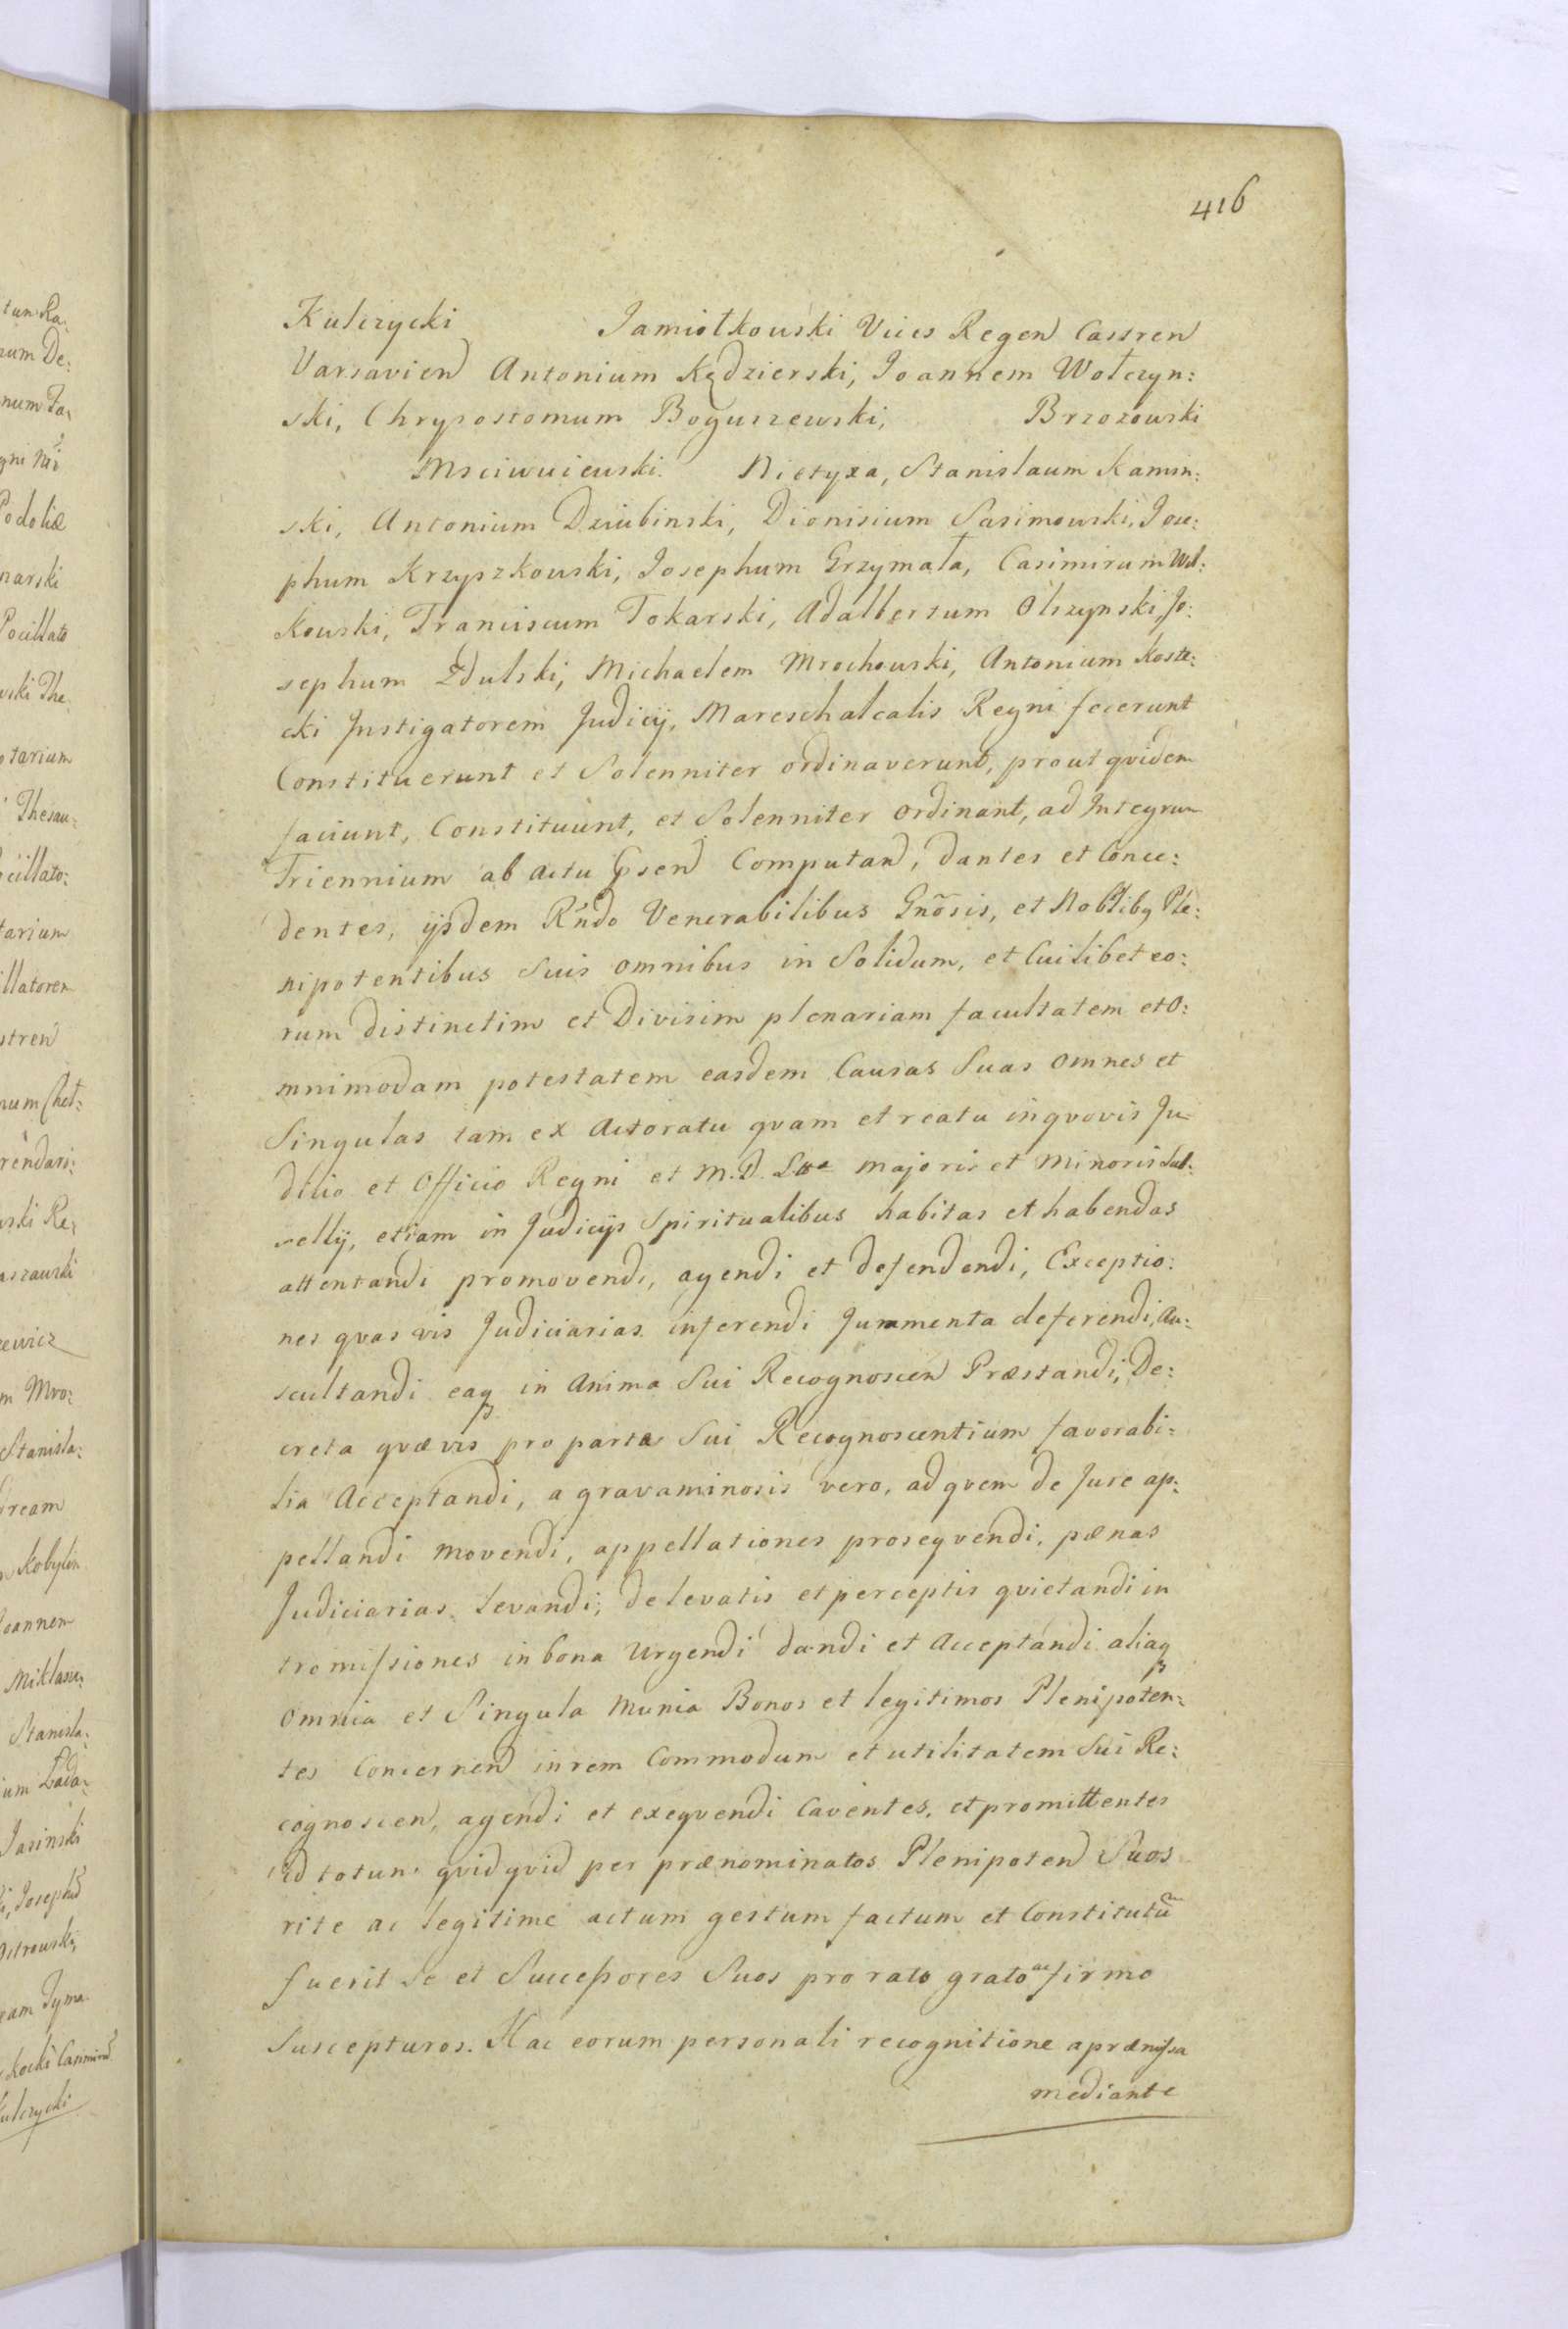 416
Kulczycki Jamiołkowski Vices Regen Castren
Varsavien Antonium Kędzierski, Joannem Wołczyn:
ski, Chrysostomum Boguszewski, Brzozowski
Msciwuiewski. Nietyxa, Stanislaum Kamin:
ski, Antonium Dziubinski, Dionisium Sasimowski, Jose:
phum Krzyszkowski, Josephum Grzymała, Casimirum Wol:
kowski, Franciscum Tokarski, Adalbertum Olszynski, Jo:
sephum Zdulski, Michaelem Mrochowski, Antonium Koste:
cki Instigatorem Judicij, Mareschalcalis Regni fecerunt
Constituerunt et Solenniter ordinaverunt, prout qvidem
faciunt, Constituunt, et Solenniter ordinant, ad Integrum
Triennium ab actu Psen Computan, dantes et Conce:
dentes, ijsdem Rndo Venerabilibus Gnosis, et Nobliby Ple:
nipotentibus Suis omnibus in Solidum, et Cuilibet eo:
rum distinctim et Divisim plenariam facultatem et O:
mnimodam potestatem easdem Causas Suas omnes et
Singulas tam ex Actoratu qvam et reatu in qvovis Ju
dicio et Officio Regni et M. D. Ltta majoris et Minoris Sub:
sellij, etiam in Judicijs Spiritualibus habitas et habendas
attentandi promovendi, agendi et defendendi, Exceptio:
nes qvas vis Judiciarias inferendi Juramenta deferendi, Au:
scultandi eaq in Anima Sui Recognoscen Præstandi, De:
creta qvævis pro parte Sui Recognoscentium favorabi:
lia Acceptandi, a gravaminosis vero, ad qvem de Jure ap:
pellandi movendi, appellationes proseqvendi, pænas
Judiciarias levandi, de levatis et perceptis qvietandi in
tromissiones in bona Urgendi dandi et Acceptandi aliaq
omnia et Singula Munia Bonos et legitimos Plenipoten:
tes Concernen in rem Commodum et utilitatem Sui Re:
cognoscen, agendi et exeqvendi Caventes, et promittentes
id totum qvidqvid per prænominatos Plenipoten Suos
rite ac legitime actum gestum factum et Constitutũ
fuerit Se et Successores Suos pro rato grato ac firmo
Suscepturos. Hac eorum personali recognitione a præmissa
mediante